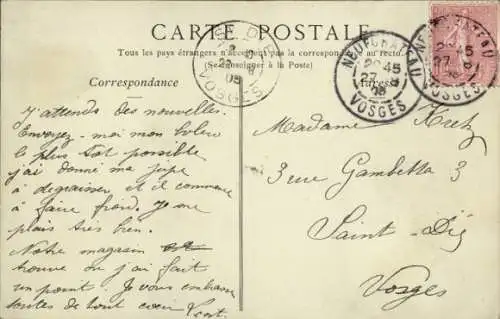 CARTE POSTALE
Tous les pays étrangers n'acceptent pas la correspondance au recto.
(Se renseigner à la Poste)
Correspondance
Adresse
NEUFCHATEAU
20 45
27
VOSGES
NEUFCHATEAU
45
27
VOSGES
VOSGES
J'attends des nouvelles.
Envoyez-moi mon boléro
le plus tôt possible
j'ai donné ma jupe
à degraisser et il commence
à faire froid. Je me
plais très bien.
Notre magasin
trouve ou j'ai fait
un point. Je vous embrasse
toutes de tout cœur
Madame Kretz
3 rue Gambetta 3
Saint-Dié
Vosges